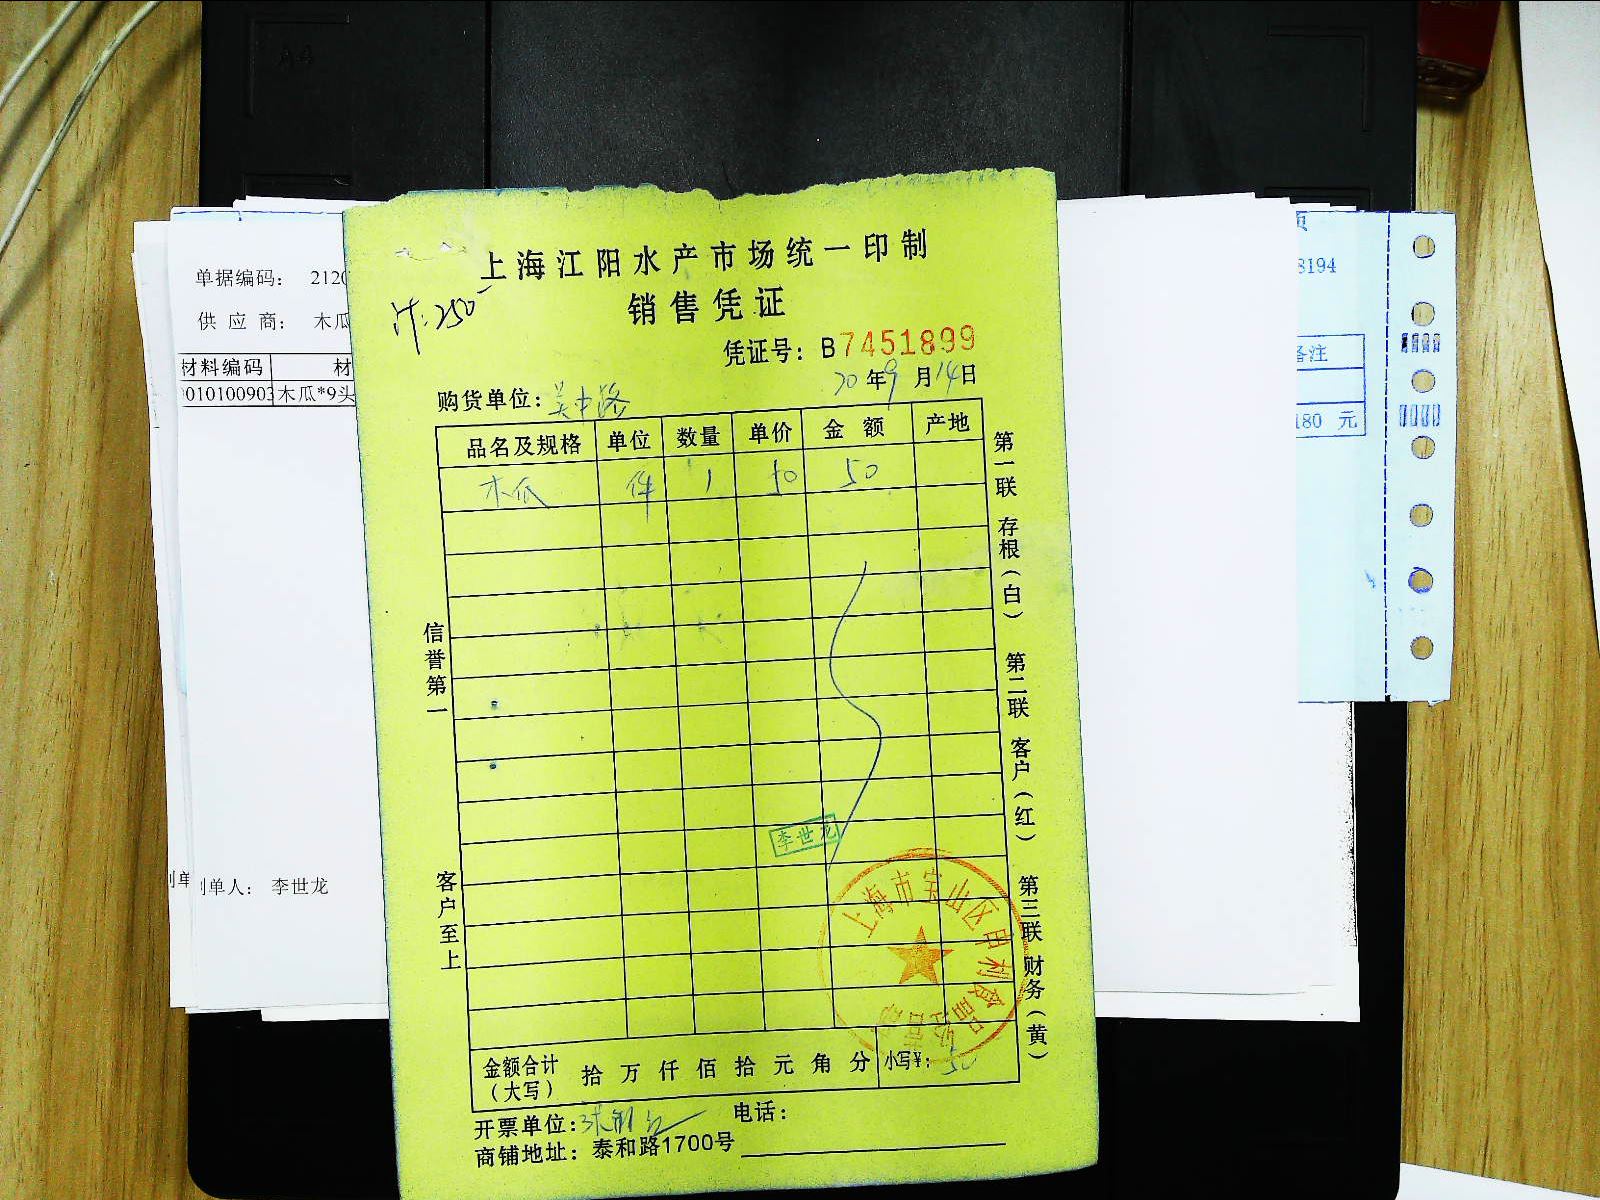 A4
上海江阳水产市场统一印制
销售凭证
计:250-
凭证号:B7451899
20年9月14日
购货单位:吴中路
品名及规格 单位 数量 单价 金额 产地
木瓜 件 1 50 50
第一联 存根(白)
第二联 客户(红)
第三联 财务(黄)
信誉第一
客户至上
李世龙
上海市宝山区申利食品经营部
金额合计(大写) 拾 万 仟 佰 拾 元 角 分 小写¥:50
开票单位:
电话:
商铺地址:泰和路1700号
单据编码: 2120
供应商: 木瓜
材料编码 材
010100903 木瓜*9头
制单人: 李世龙
页
8194
备注
180 元